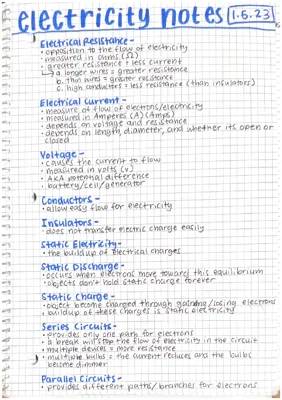 electricity notes 1.6.23
Electrical Resistance -
• opposition to the flow of electricity
• measured in ohms (Ω)
• greater resistance = less current
a. longer wires = greater resistance
b. thin wires = greater resistance
c. high conductors = less resistance (than insulators)
Electrical Current -
• measure of flow of electrons/electricity
• measured in Amperes (A) (Amps)
• depends on voltage and resistance
• depends on length, diameter, and whether its open or
closed
Voltage -
• causes the current to flow
• measured in volts (v)
• AKA potential difference
• battery/cell/generator
Conductors -
• allow easy flow for electricity
Insulators -
• does not transfer electric charge easily
Static Electricity -
• the buildup of electrical charges
Static Discharge -
• occurs when electrons move toward this equilibrium
• objects don't hold static charge forever
Static Charge -
• object become charged through gaining/losing electrons
• buildup of these charges is static electricity
Series Circuits -
• provides only one path for electrons
• a break will stop the flow of electricity in the circuit
• multiple devices = more resistance
• multiple bulbs = the current reduces and the bulbs
become dimmer
Parallel Circuits -
• provides different paths/branches for electrons